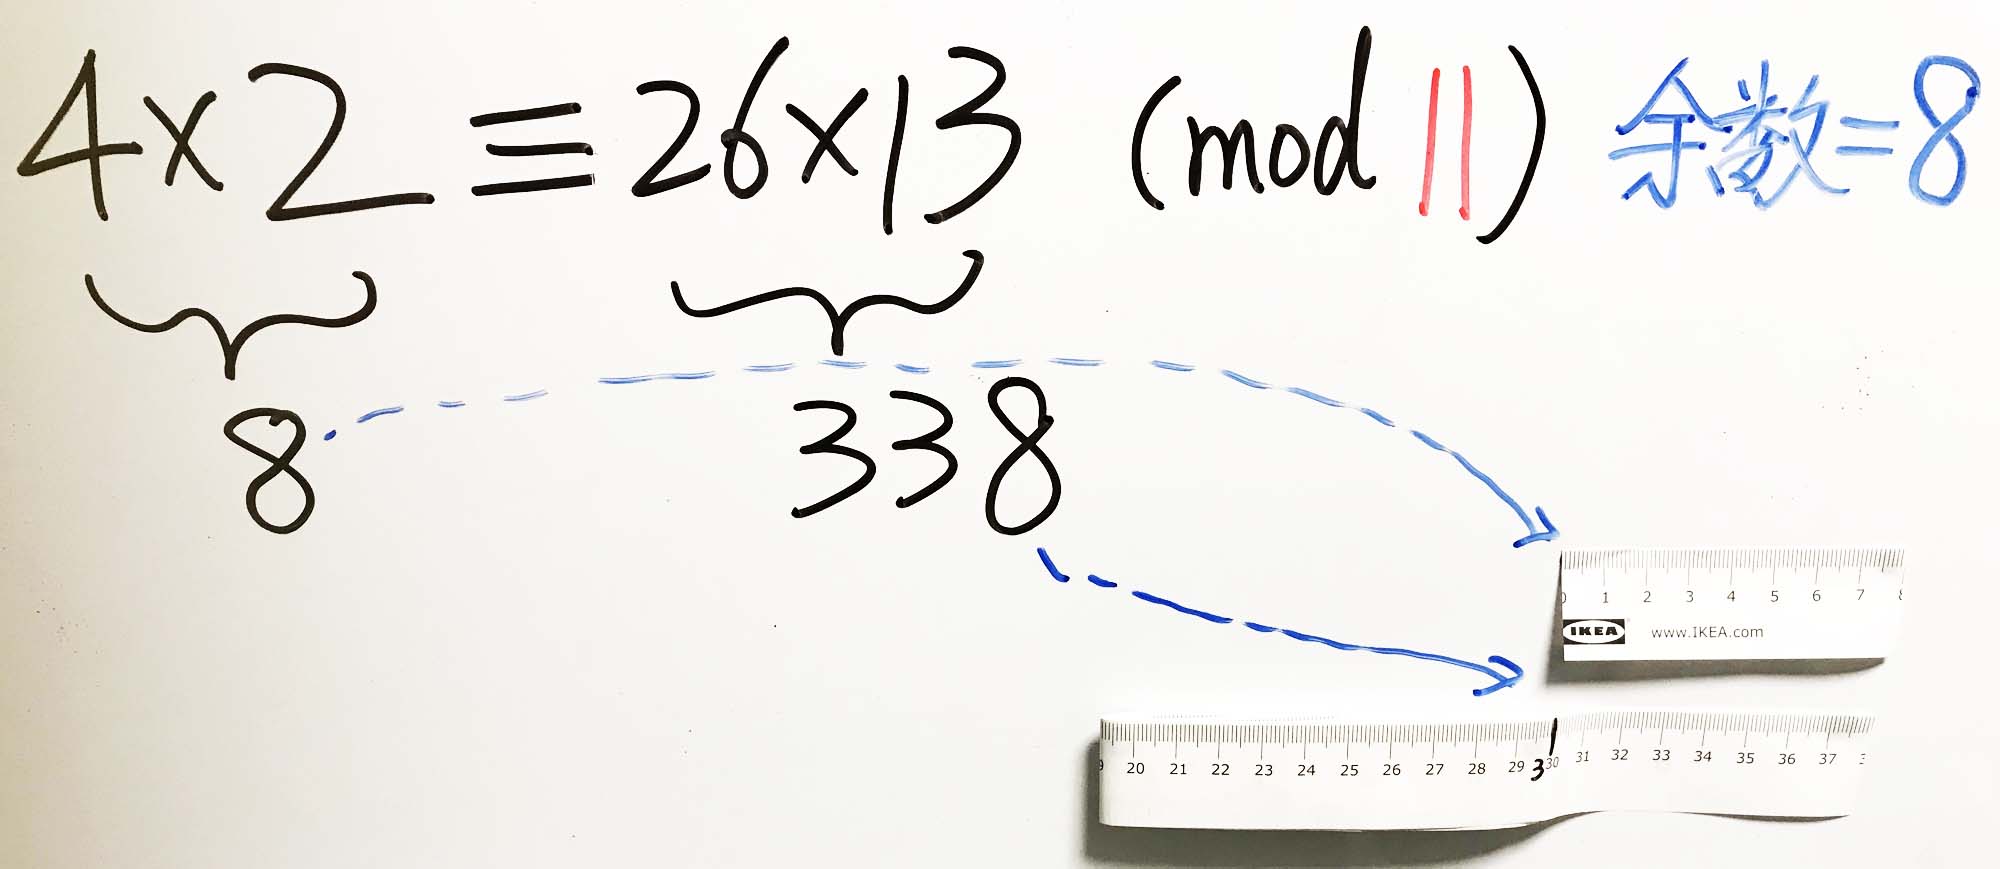 4×2≡26×13 (mod 11) 余数=8
8 338
0 1 2 3 4 5 6 7
IKEA www.IKEA.com
20 21 22 23 24 25 26 27 28 29 330 31 32 33 34 35 36 37